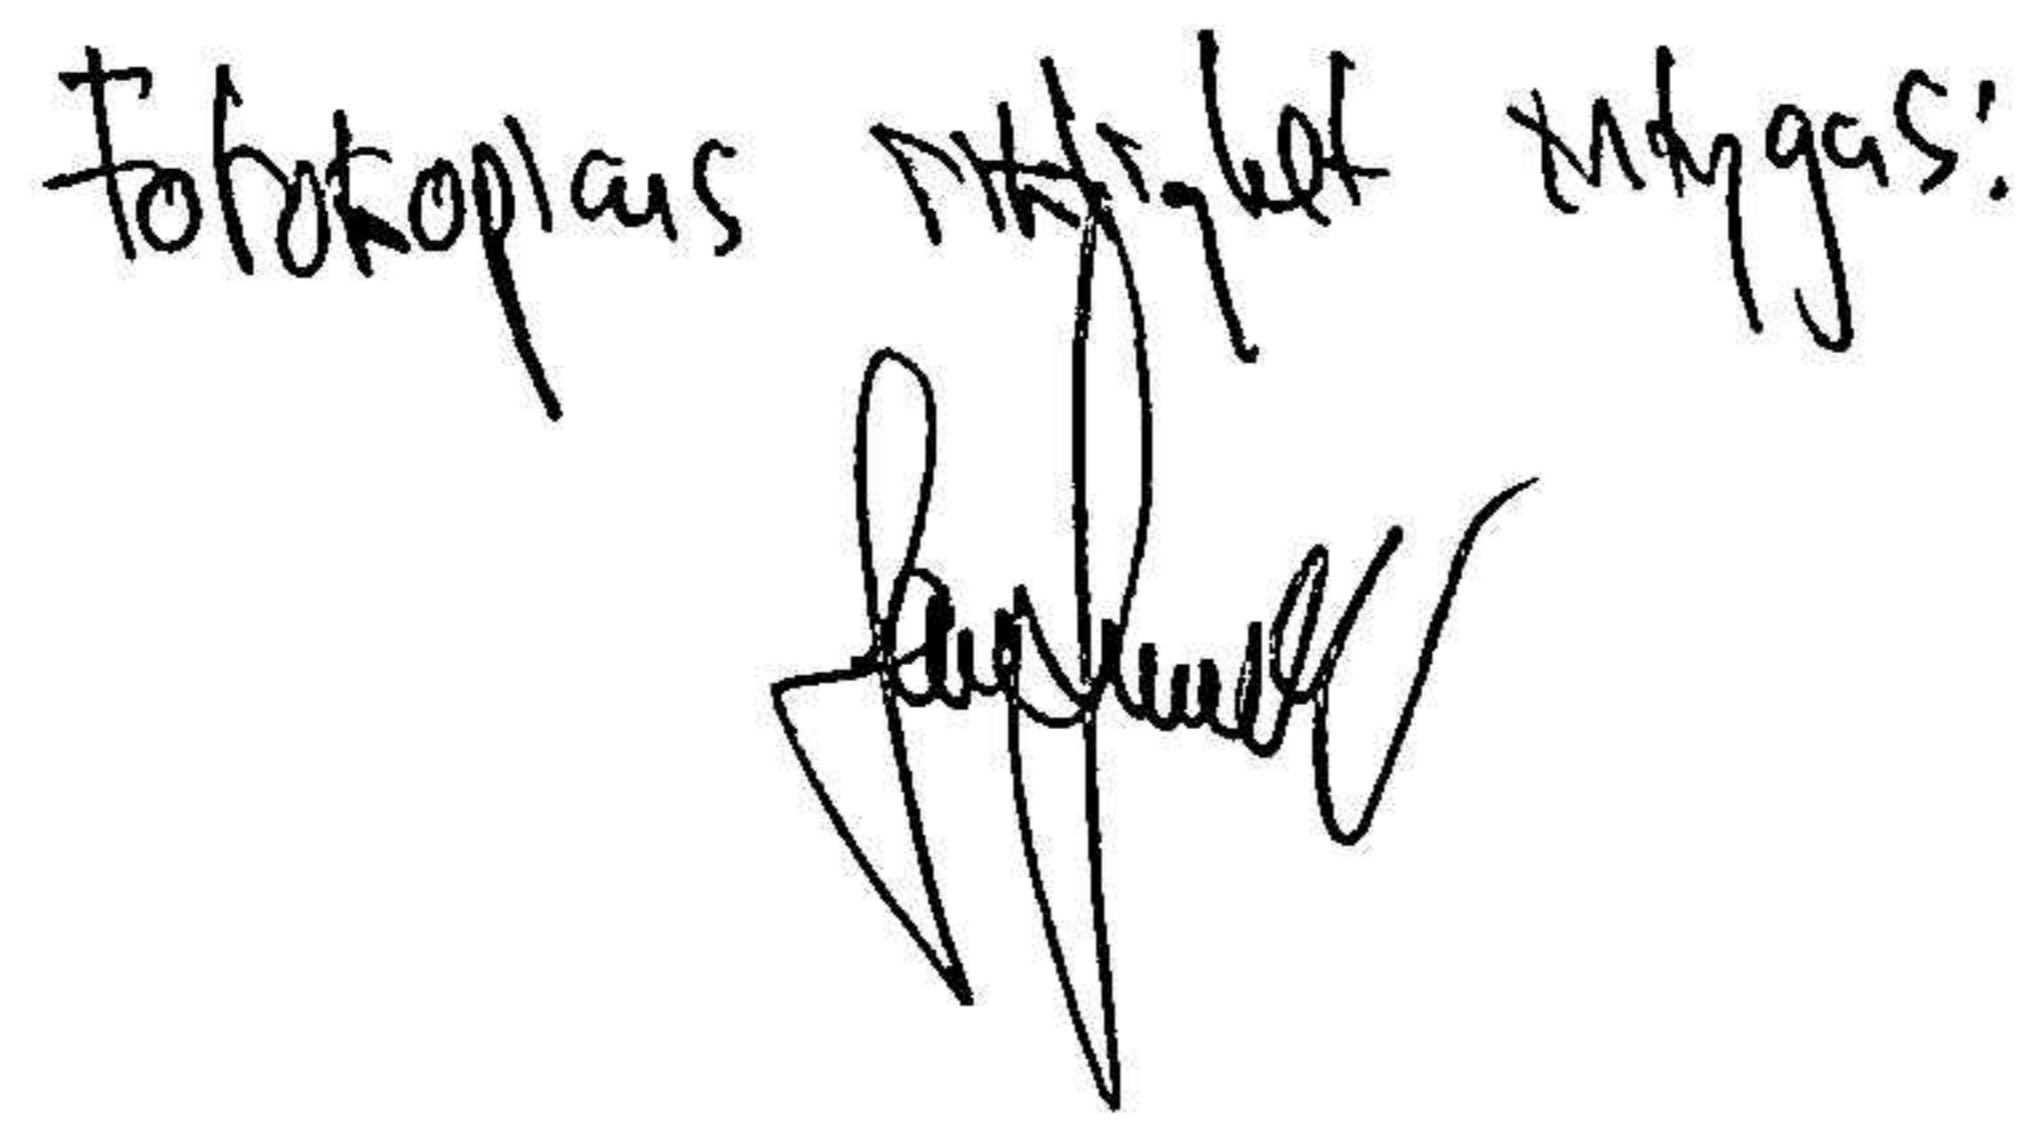 Fotokopians riktighet intygas: